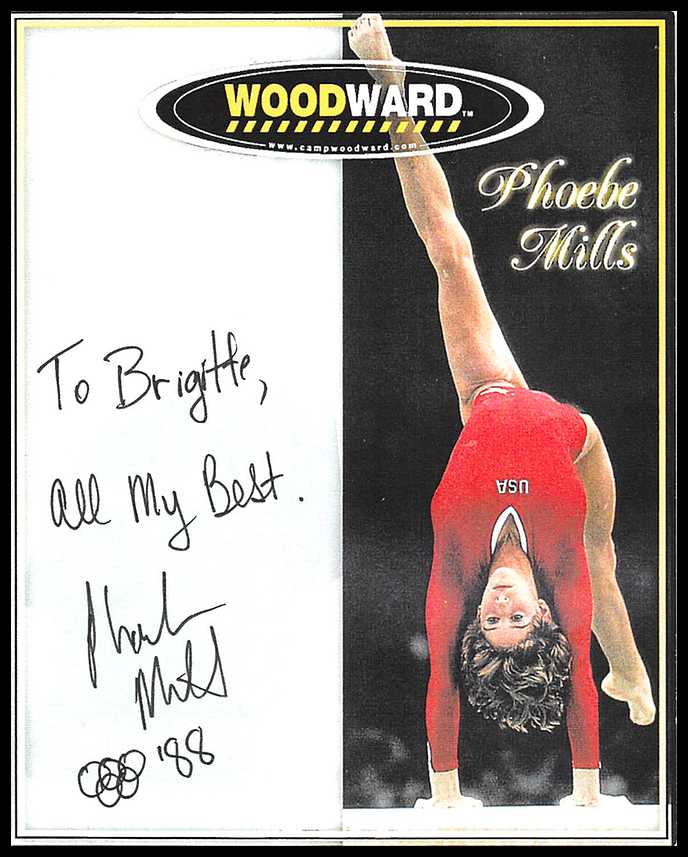 WOODWARD™
www.campwoodward.com
Phoebe
Mills
To Brigitte,
All My Best.
Phoebe
Mills
'88
USA